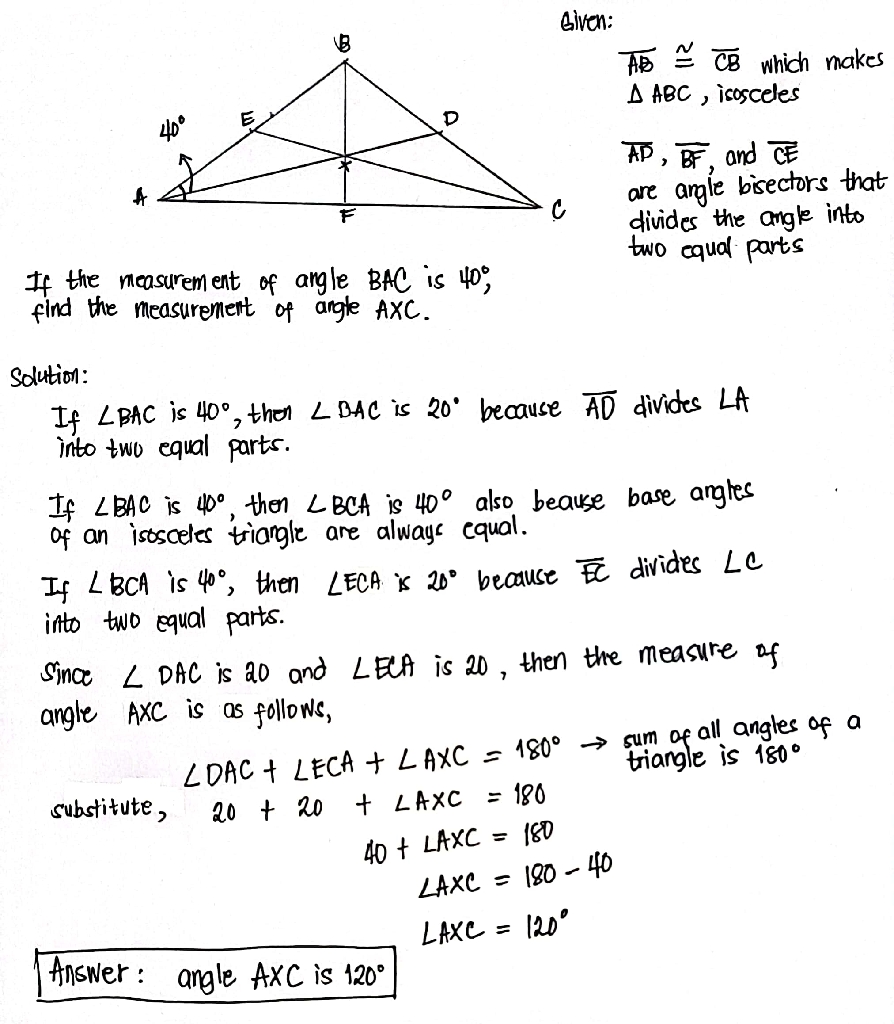 Given:
AB ≅ CB which makes
Δ ABC, isosceles
AD, BF, and CE
are angle bisectors that
divides the angle into
two equal parts
B
E
D
40°
X
A
F
C
If the measurement of angle BAC is 40°,
find the measurement of angle AXC.
Solution:
If ∠BAC is 40°, then ∠DAC is 20° because AD divides ∠A
into two equal parts.
If ∠BAC is 40°, then ∠BCA is 40° also beause base angles
of an isosceles triangle are always equal.
If ∠BCA is 40°, then ∠ECA is 20° because EC divides ∠C
into two equal parts.
Since ∠DAC is 20 and ∠ECA is 20, then the measure of
angle AXC is as follows,
∠DAC + ∠ECA + ∠AXC = 180° → sum of all angles of a
triangle is 180°
substitute, 20 + 20 + ∠AXC = 180
40 + ∠AXC = 180
∠AXC = 180 - 40
∠AXC = 120°
Answer: angle AXC is 120°